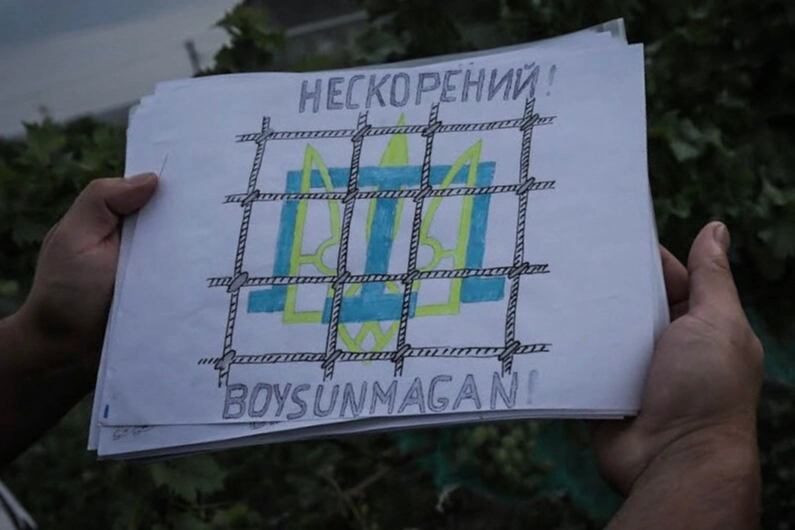 НЕСКОРЕНИЙ!
BOYSUNMAGAN!